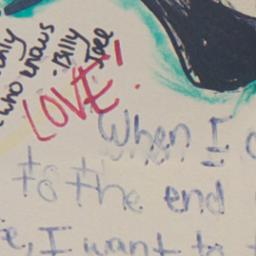 only
who knows
- Billy
Joel
LOVE!
When I
to the end
I want to